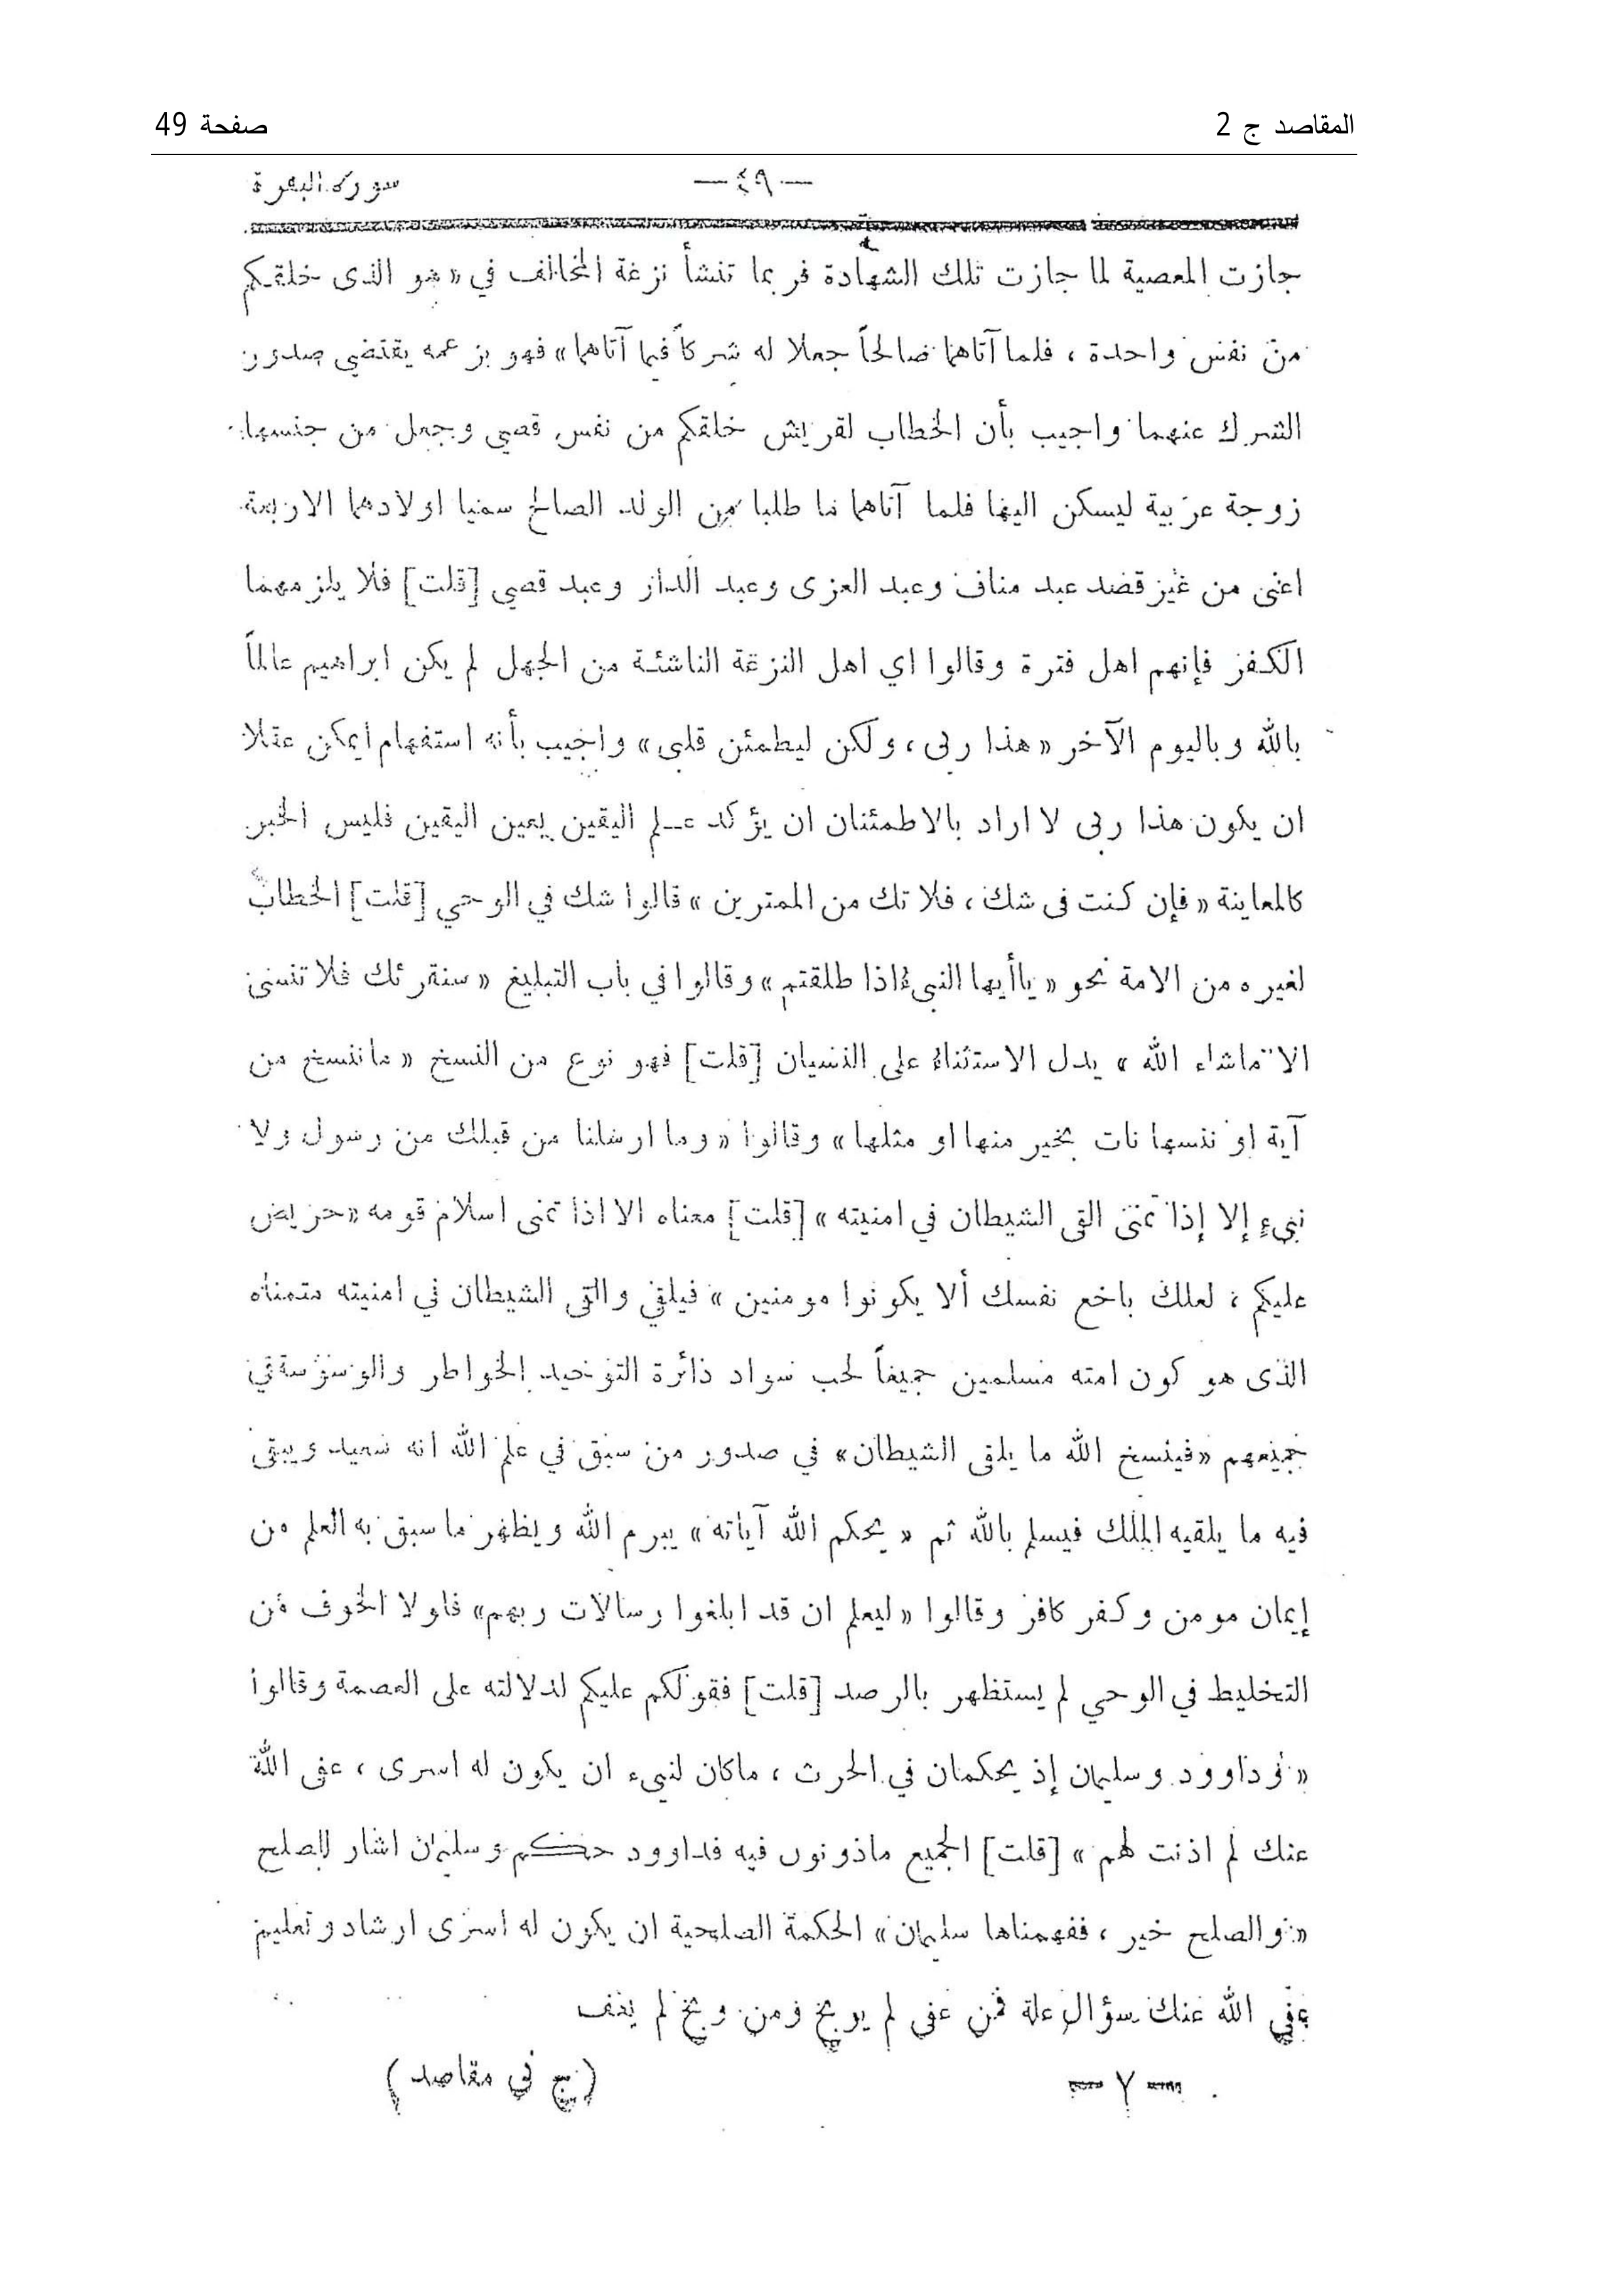 المقاصد ج 2
صفحة 49
سورة البقرة
— ٤٩ —
جازت المعصية لما جازت تلك الشهادة فربما تنشأ نزغة المخالف في «هو الذى خلقكم
من نفس واحدة ، فلما آتاهما صالحاً جعلا له شركاً فيما آتاهما» فهو بزعمه يقتضي صدور
الشرك عنهما واجيب بأن الخطاب لقريش خلقكم من نفس قصي وجعل من جنسها
زوجة عربية ليسكن اليها فلما آتاهما ما طلبا من الولد الصالح سميا اولادهما الاربعة
اعنى من غير قصد عبد مناف وعبد العزى وعبد الدار وعبد قصي [قلت] فلا يلزمهما
الكفر فإنهم اهل فترة وقالوا اي اهل النزغة الناشئة من الجهل لم يكن ابراهيم عالماً
بالله وباليوم الآخر «هذا ربى ، ولكن ليطمئن قلبى» واجيب بأنه استفهام أيمكن عقلا
ان يكون هذا ربى لا اراد بالاطمئنان ان يؤكد علم اليقين بعين اليقين فليس الخبر
كالمعاينة «فإن كنت فى شك ، فلا تك من الممترين» قالوا شك في الوحي [قلت] الخطاب
لغيره من الامة نحو «ياأيها النبىء اذا طلقتم» وقالوا في باب التبليغ «سنقرئك فلا تنسى
الا ماشاء الله» يدل الاستثناء على النسيان [قلت] فهو نوع من النسخ «ماننسخ من
آية او ننسها نات بخير منها او مثلها» وقالوا «وما ارسلنا من قبلك من رسول ولا
نبىءٍ إلا إذا تمنى القى الشيطان في امنيته» [قلت] معناه الا اذا تمنى اسلام قومه «حريص
عليكم ، لعلك باخع نفسك ألا يكونوا مومنين» فيلقي والقى الشيطان في امنيته متمناه
الذى هو كون امته مسلمين جميعاً لحب سواد دائرة التوحيد الخواطر والوسوسة في
جميعهم «فينسخ الله ما يلقى الشيطان» في صدور من سبق في علم الله انه سعيد ويبقى
فيه ما يلقيه الملك فيسلم بالله ثم «يحكم الله آياته» يبرم الله ويظهر ما سبق به العلم من
إيمان مومن وكفر كافر وقالوا «ليعلم ان قد ابلغوا رسالات ربهم» فلولا الخوف من
التخليط في الوحي لم يستظهر بالرصد [قلت] فقولكم عليكم لدلالته على العصمة وقالوا
«وداوود وسليمان إذ يحكمان في الحرث ، ماكان لنبىء ان يكون له اسرى ، عفى الله
عنك لم اذنت لهم» [قلت] الجميع ماذونون فيه فداوود حكم وسليمان اشار للصلح
«والصلح خير ، ففهمناها سليمان» الحكمة الصلحية ان يكون له اسرى ارشاد وتعليم
عفى الله عنك سؤال علة فمن عفى لم يوبخ ومن وبخ لم يعف
— ٧ —
(ج في مقاصد)